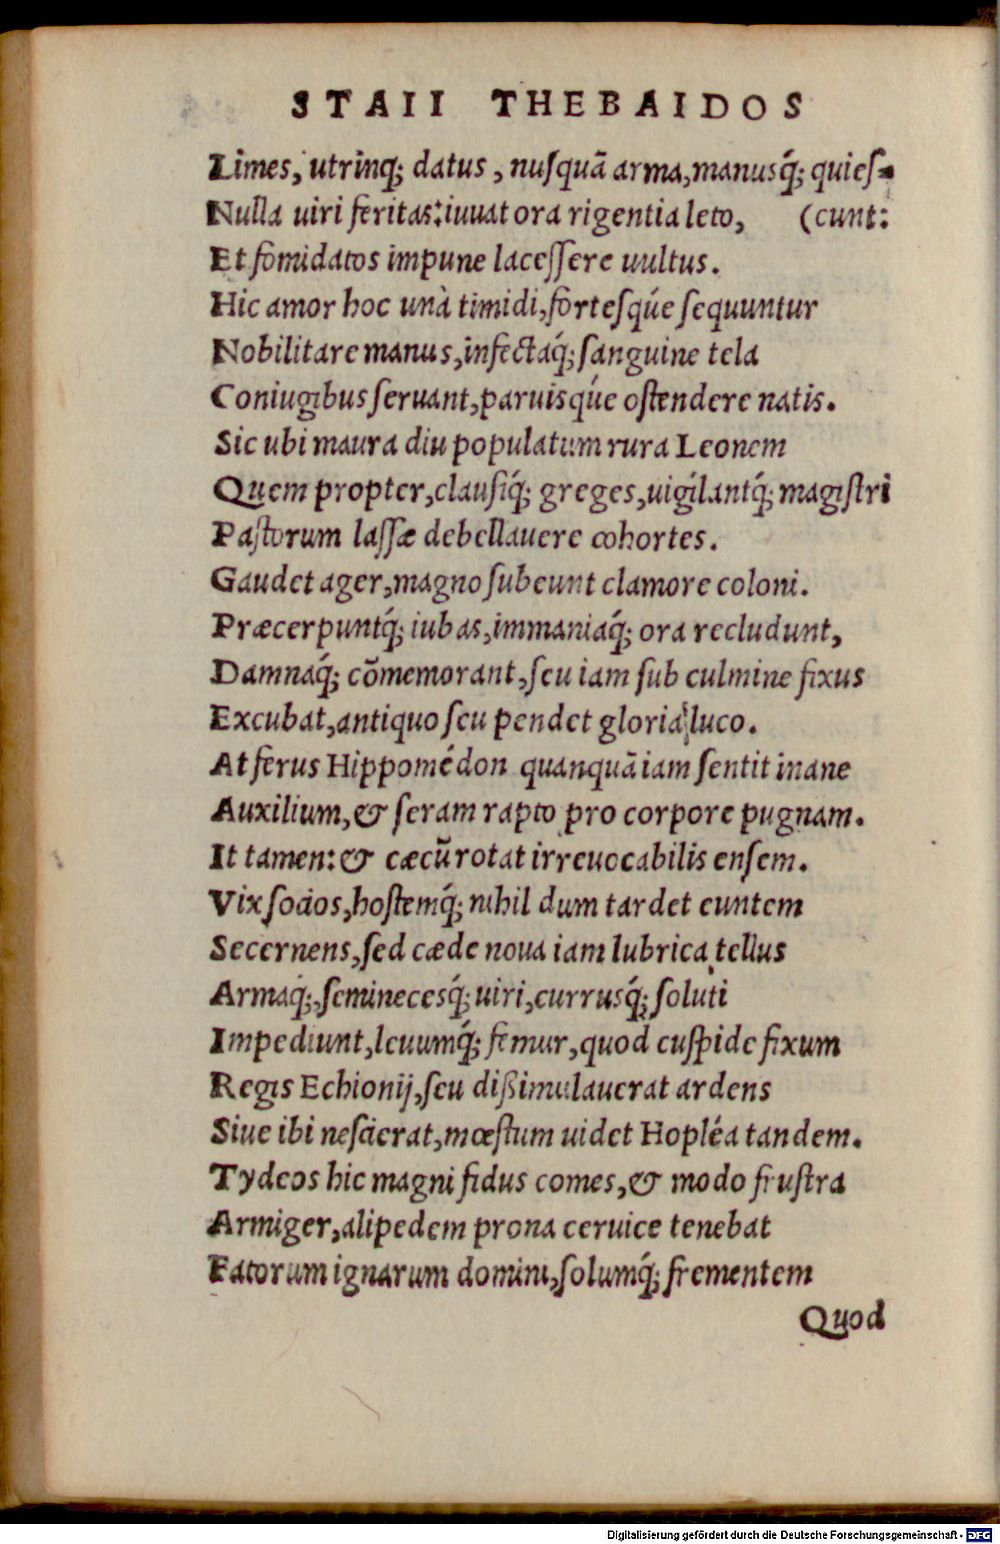 STAII THEBAIDOS
Limes, utrinq; datus, nusquã arma, manusq́; quies-
Nulla uiri feritas: iuuat ora rigentia leto, (cunt:
Et fomidatos impune lacessere uultus.
Hic amor hoc unà timidi, fortesq́ue sequuntur
Nobilitare manus, infectaq́; sanguine tela
Coniugibus seruant, paruisq́ue ostendere natis.
Sic ubi maura diu populatum rura Leonem
Quem propter, clausiq́; greges, uigilantq́; magistri
Pastorum lassæ debellauere cohortes.
Gaudet ager, magno subeunt clamore coloni.
Præcerpuntq́; iubas, immaniaq́; ora recludunt,
Damnaq́; cõmemorant, seu iam sub culmine fixus
Excubat, antiquo seu pendet gloria luco.
At ferus Hippomédon quanquã iam sentit inane
Auxilium, & seram rapto pro corpore pugnam.
It tamen: & cæcũ rotat irreuocabilis ensem.
Vix socios, hostemq́; nihil dum tardet euntem
Secernens, sed cæde noua iam lubrica tellus
Armaq́;, seminecesq́; uiri, currusq́; soluti
Impediunt, leuumq́; femur, quod cuspide fixum
Regis Echionij, seu dißimulauerat ardens
Siue ibi nescierat, mœstum uidet Hopléa tandem.
Tydeos hic magni fidus comes, & modo frustra
Armiger, alipedem prona ceruice tenebat
Fatorum ignarum domini, solumq́; frementem
Quod
Digitalisierung gefördert durch die Deutsche Forschungsgemeinschaft - DFG